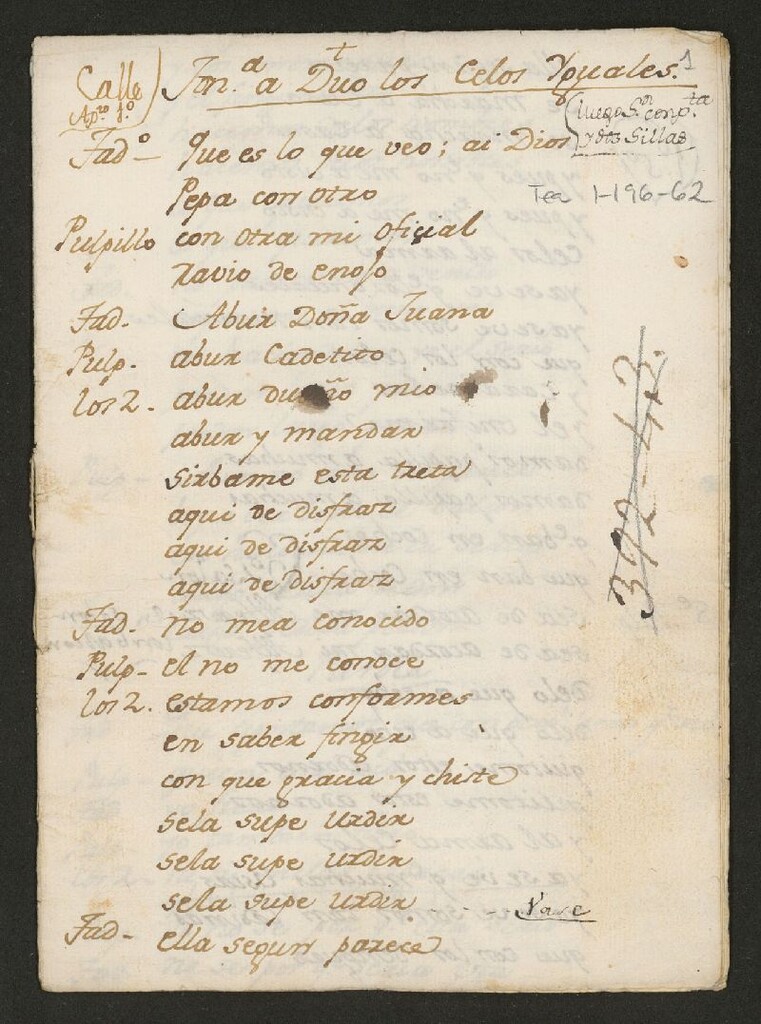 +
Calle
Apto 1º
Ton.a a Duo los Celos Yguales.
1
luego S.n con p.ta
y dos Sillas
Tea 1-196-62
Fad.º - Que es lo que veo; ai Dios
Pepa con otro
Pulpillo con otra mi oficial
ravio de enojo
Fad. Abur Doña Juana
Pulp. abur Cadetito
los 2. abur dueño mio
abur y mandar
sirbame esta treta
aqui de disfraz
aqui de disfraz
aqui de disfraz
Fad. no mea conocido
Pulp. el no me conoce
los 2. estamos conformes
en saber fingir
con que gracia y chiste
sela supe urdir
sela supe urdir
sela supe urdir
Vase
Fad. ella segun parece
392-42.